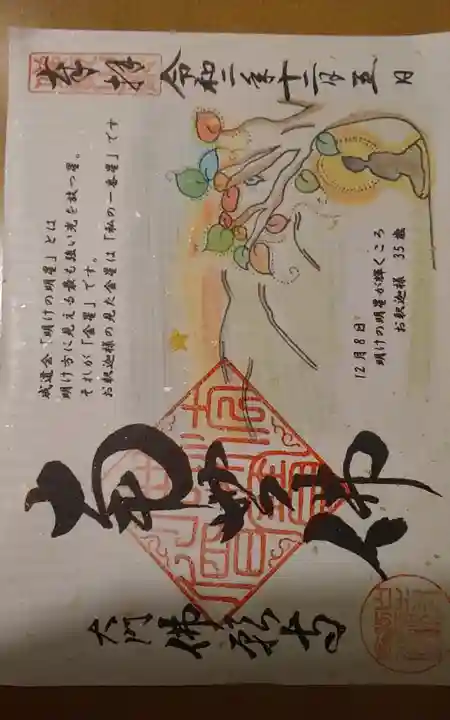 奉拝
令和二年十二月五日
12月8日
明けの明星が輝くころ
お釈迦様 35歳
成道会「明けの明星」とは
明け方に見える最も強い光を放つ星。
それが「金星」です。
お釈迦様の見た金星は「私の一番星」です
大門 佛願寺